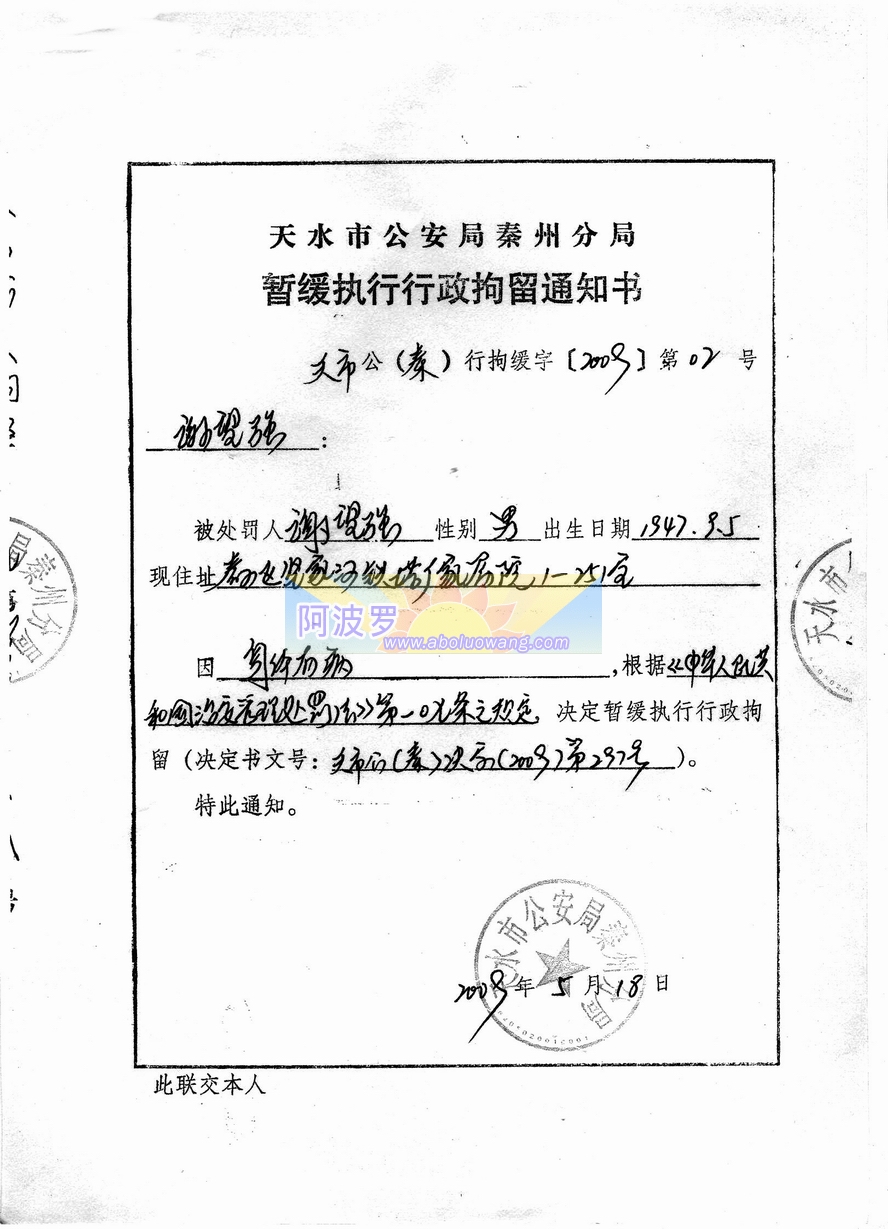 天水市公安局秦州分局
暂缓执行行政拘留通知书
天市公(秦)行拘缓字〔2009〕第02号
谢望强:
被处罚人谢望强 性别 男 出生日期1947.9.5
现住址 家属院1-251室
阿波罗
www.aboluowang.com
因 身体有病,根据《中华人民共
和国治安管理处罚法》第一0七条之规定,决定暂缓执行行政拘
留(决定书文号:天市公(秦)决字(2009)第297号)。
特此通知。
天水市公安局秦州分局
2009年5月18日
此联交本人
局秦州分局
天水市